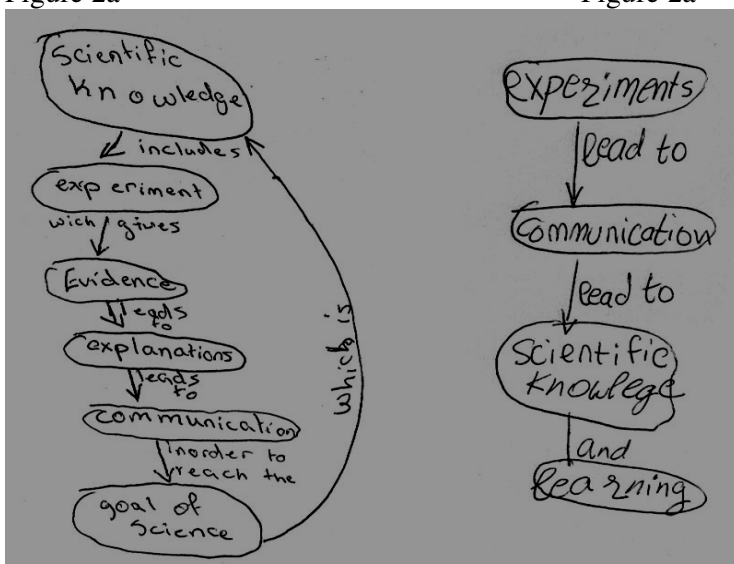 Figure 2a
Figure 2a
Scientific
Knowledge
includes
experiment
wich gives
Evidence
leads
to
explanations
leads
to
communication
inorder to
reach the
goal of
Science
which is
experiments
lead to
Communication
lead to
Scientific
Knowlege
and
learning